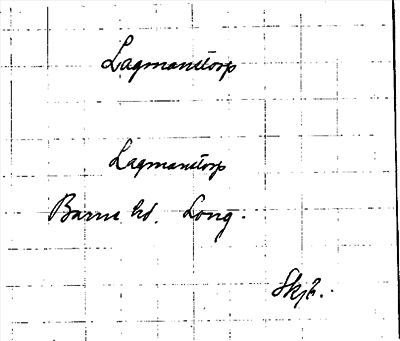 Lagmanstorp
Lagmanstorp
Barne hd. Long.
Skjt.